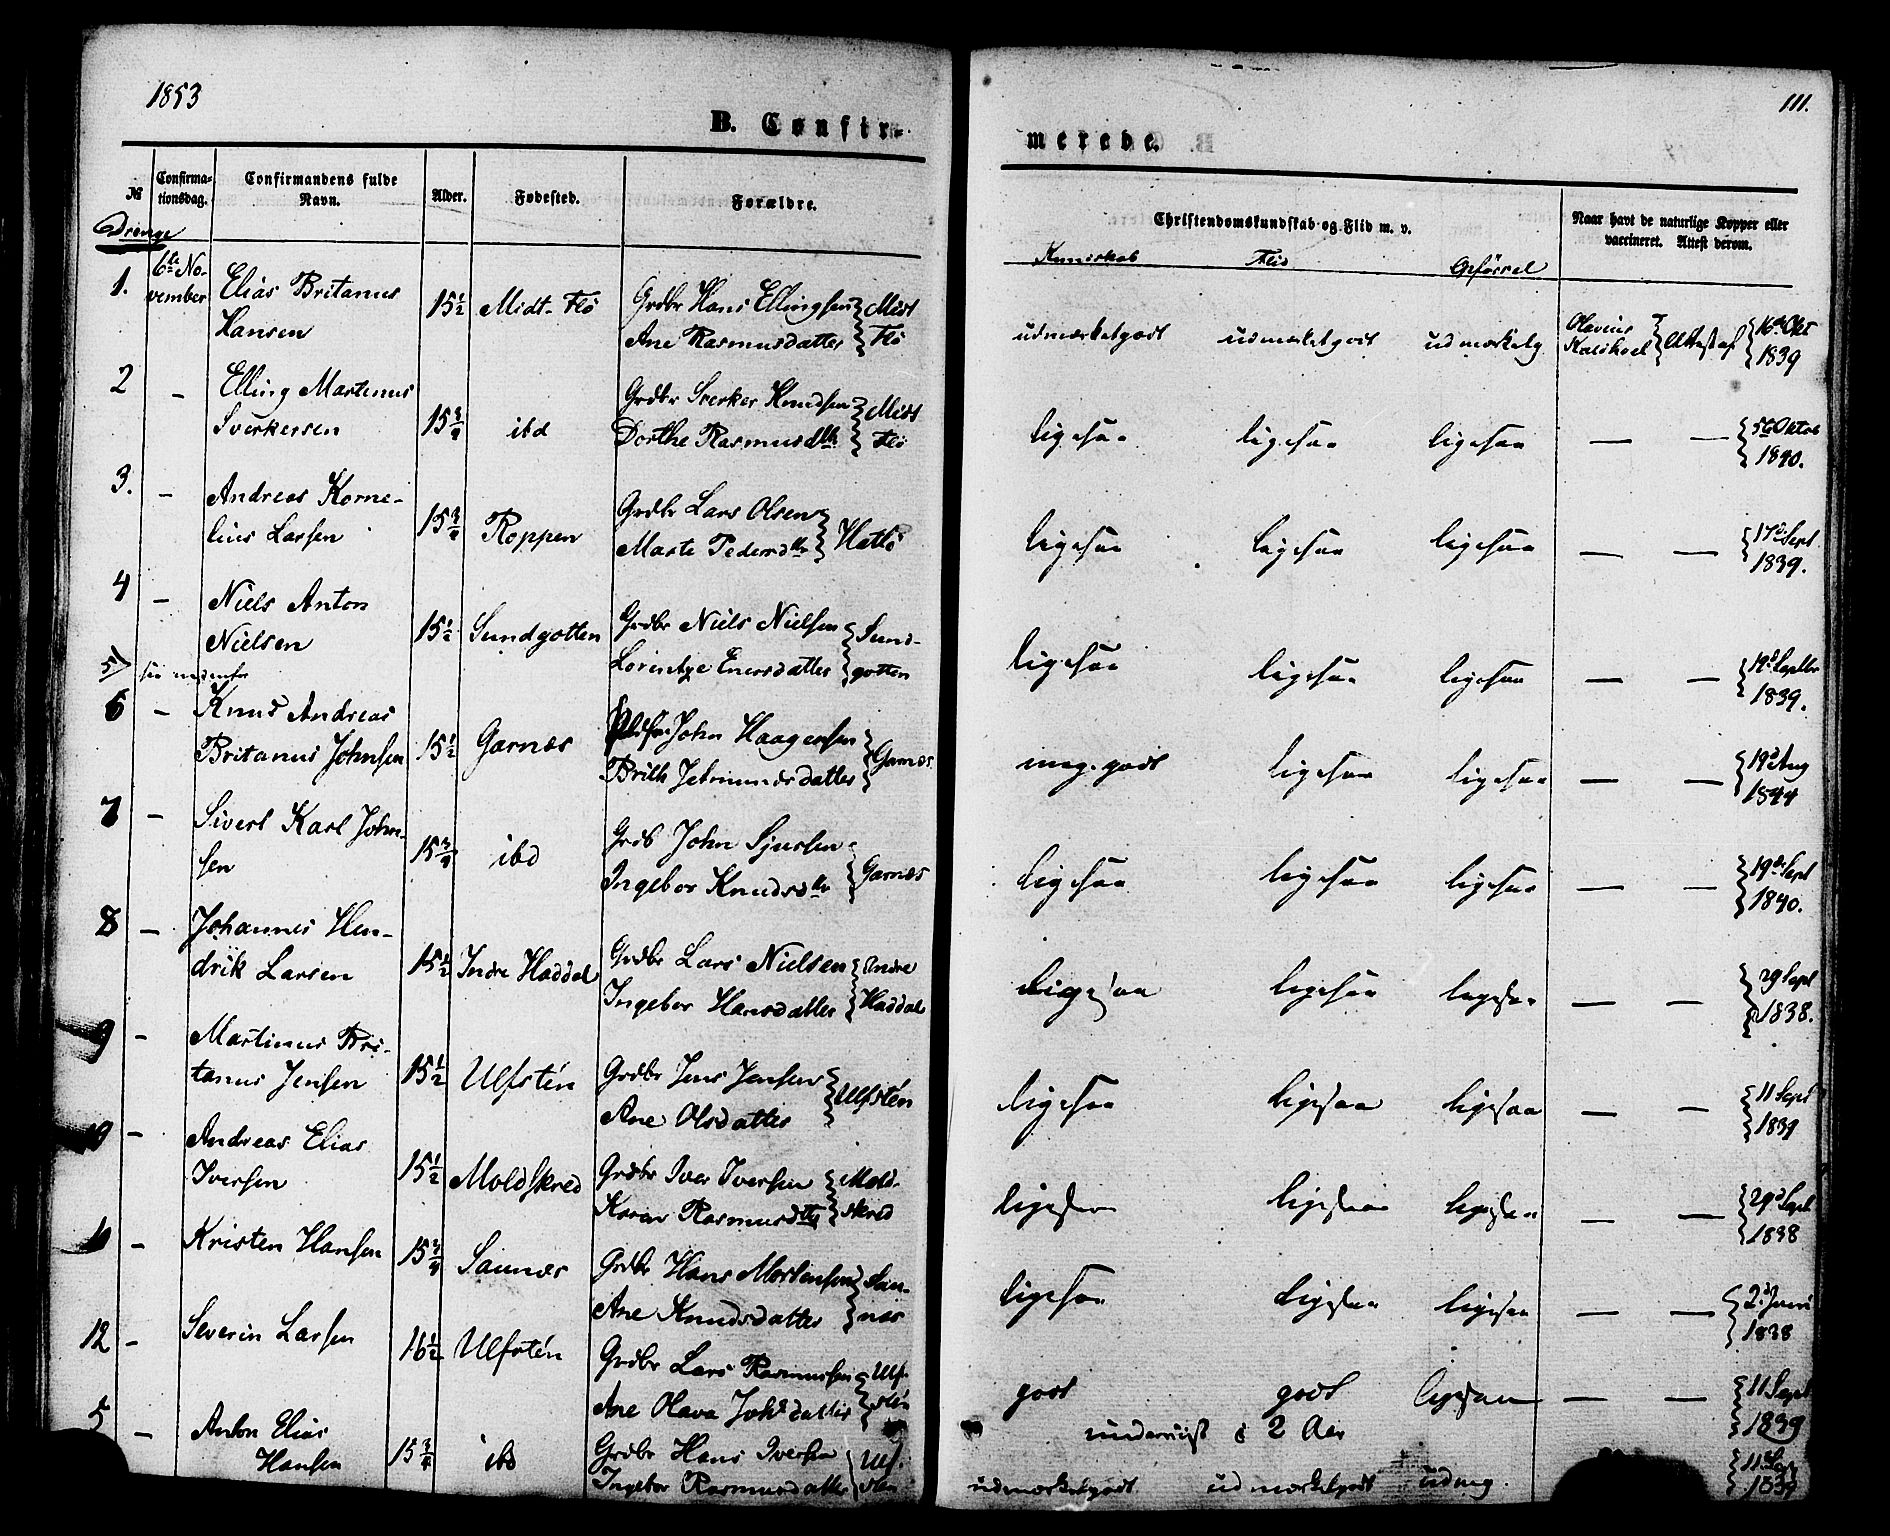 1853
111.
B. Confir-
merede.
№
Confirma-
tionsdag.
Confirmandens fulde
Navn.
Alder.
Fødested.
Forældre.
Christendomskundskab og Flid m. v.
Naar havt de naturlige Kopper eller
vaccineret. Attest derom.
Drenge
Kundskab Flid Opførsel
1. 6te No-
vember Elias Britanus
Hansen 15½ Midt-Flö Grdbr Hans Ellingsen
Ane Rasmusdatter } Midt
Flö udmærketgodt udmærketgodt udmærketg Olavius
Kaldhoel } Attest af { 16de Okt
1839
2 – Elling Martinus
Sverkersen 15¾ ibd Grdbr Sverker Knudsen
Dorthe Rasmusdtr } Midt
Flö ligesaa ligesaa ligesaa — — { 5te Oktob
1840.
3. – Andreas Korne-
lius Larsen 15¾ Roppen Grdbr Lars Olsen
Marte Pedersdtr } Hatlö ligesaa ligesaa ligesaa — — { 17d Sept
1839.
4 – Niels Anton
Nielsen 15½ Sundgotten Grdbr Niels Nielsen
Lorentze Enersdatter } Sund-
gotten ligesaa ligesaa ligesaa — — { 19d Septbr
1839.
5 see nedenfor
6 – Knud Andreas
Britanus Johnsen 15½ Garnæs John Haagensen
Brith Jetmundsdatter } Garnæs meg. godt ligesaa ligesaa — — { 19d Aug
1844
7 – Sivert Karl John-
sen 15¾ ibd Grdb John Sjursen
Ingebor Knudsdtr } Garnæs ligesaa ligesaa ligesaa — — { 19de Sept
1840.
8 – Johannes Hen-
drik Larsen 15½ Indre Haddal Grdbr Lars Nielsen
Ingebor Hansdatter } Indre
Haddal ligesaa ligesaa ligesaa — — { 29 Sept
1838.
9 – Martinus Bri-
tanus Jensen 15½ Ulfstén Grdbr Jens Jensen
Ane Olsdatter } Ulfstén ligesaa ligesaa ligesaa — — { 11 Sept
1839
10 – Andreas Elias
Iversen 15½ Moldskred Grdbr Iver Iversen
Karen Rasmusdtr } Mold-
skred ligesaa ligesaa ligesaa — — { 29d Sept
1838
11 – Kristen Hansen 15¾ Saunæs Grdbr Hans Mortensen
Ane Knudsdatter } Sau-
næs ligesaa ligesaa ligesaa — — { 2d Juni
1838
12 – Severin Larsen 16½ Ulfstén Grdbr Lars Rasmussen
Ane Olava Johsdatter } Ulf-
stén godt godt ligesaa — — { 11 Sept
1839
underviist i 2 Aar
5 – Anton Elias
Hansen 15¾ ibd Grdbr Hans Iversen
Ingebor Rasmusdatter } Ulf-
stén udmærketgodt udmærketgodt udmg. { 11 Sep
1839